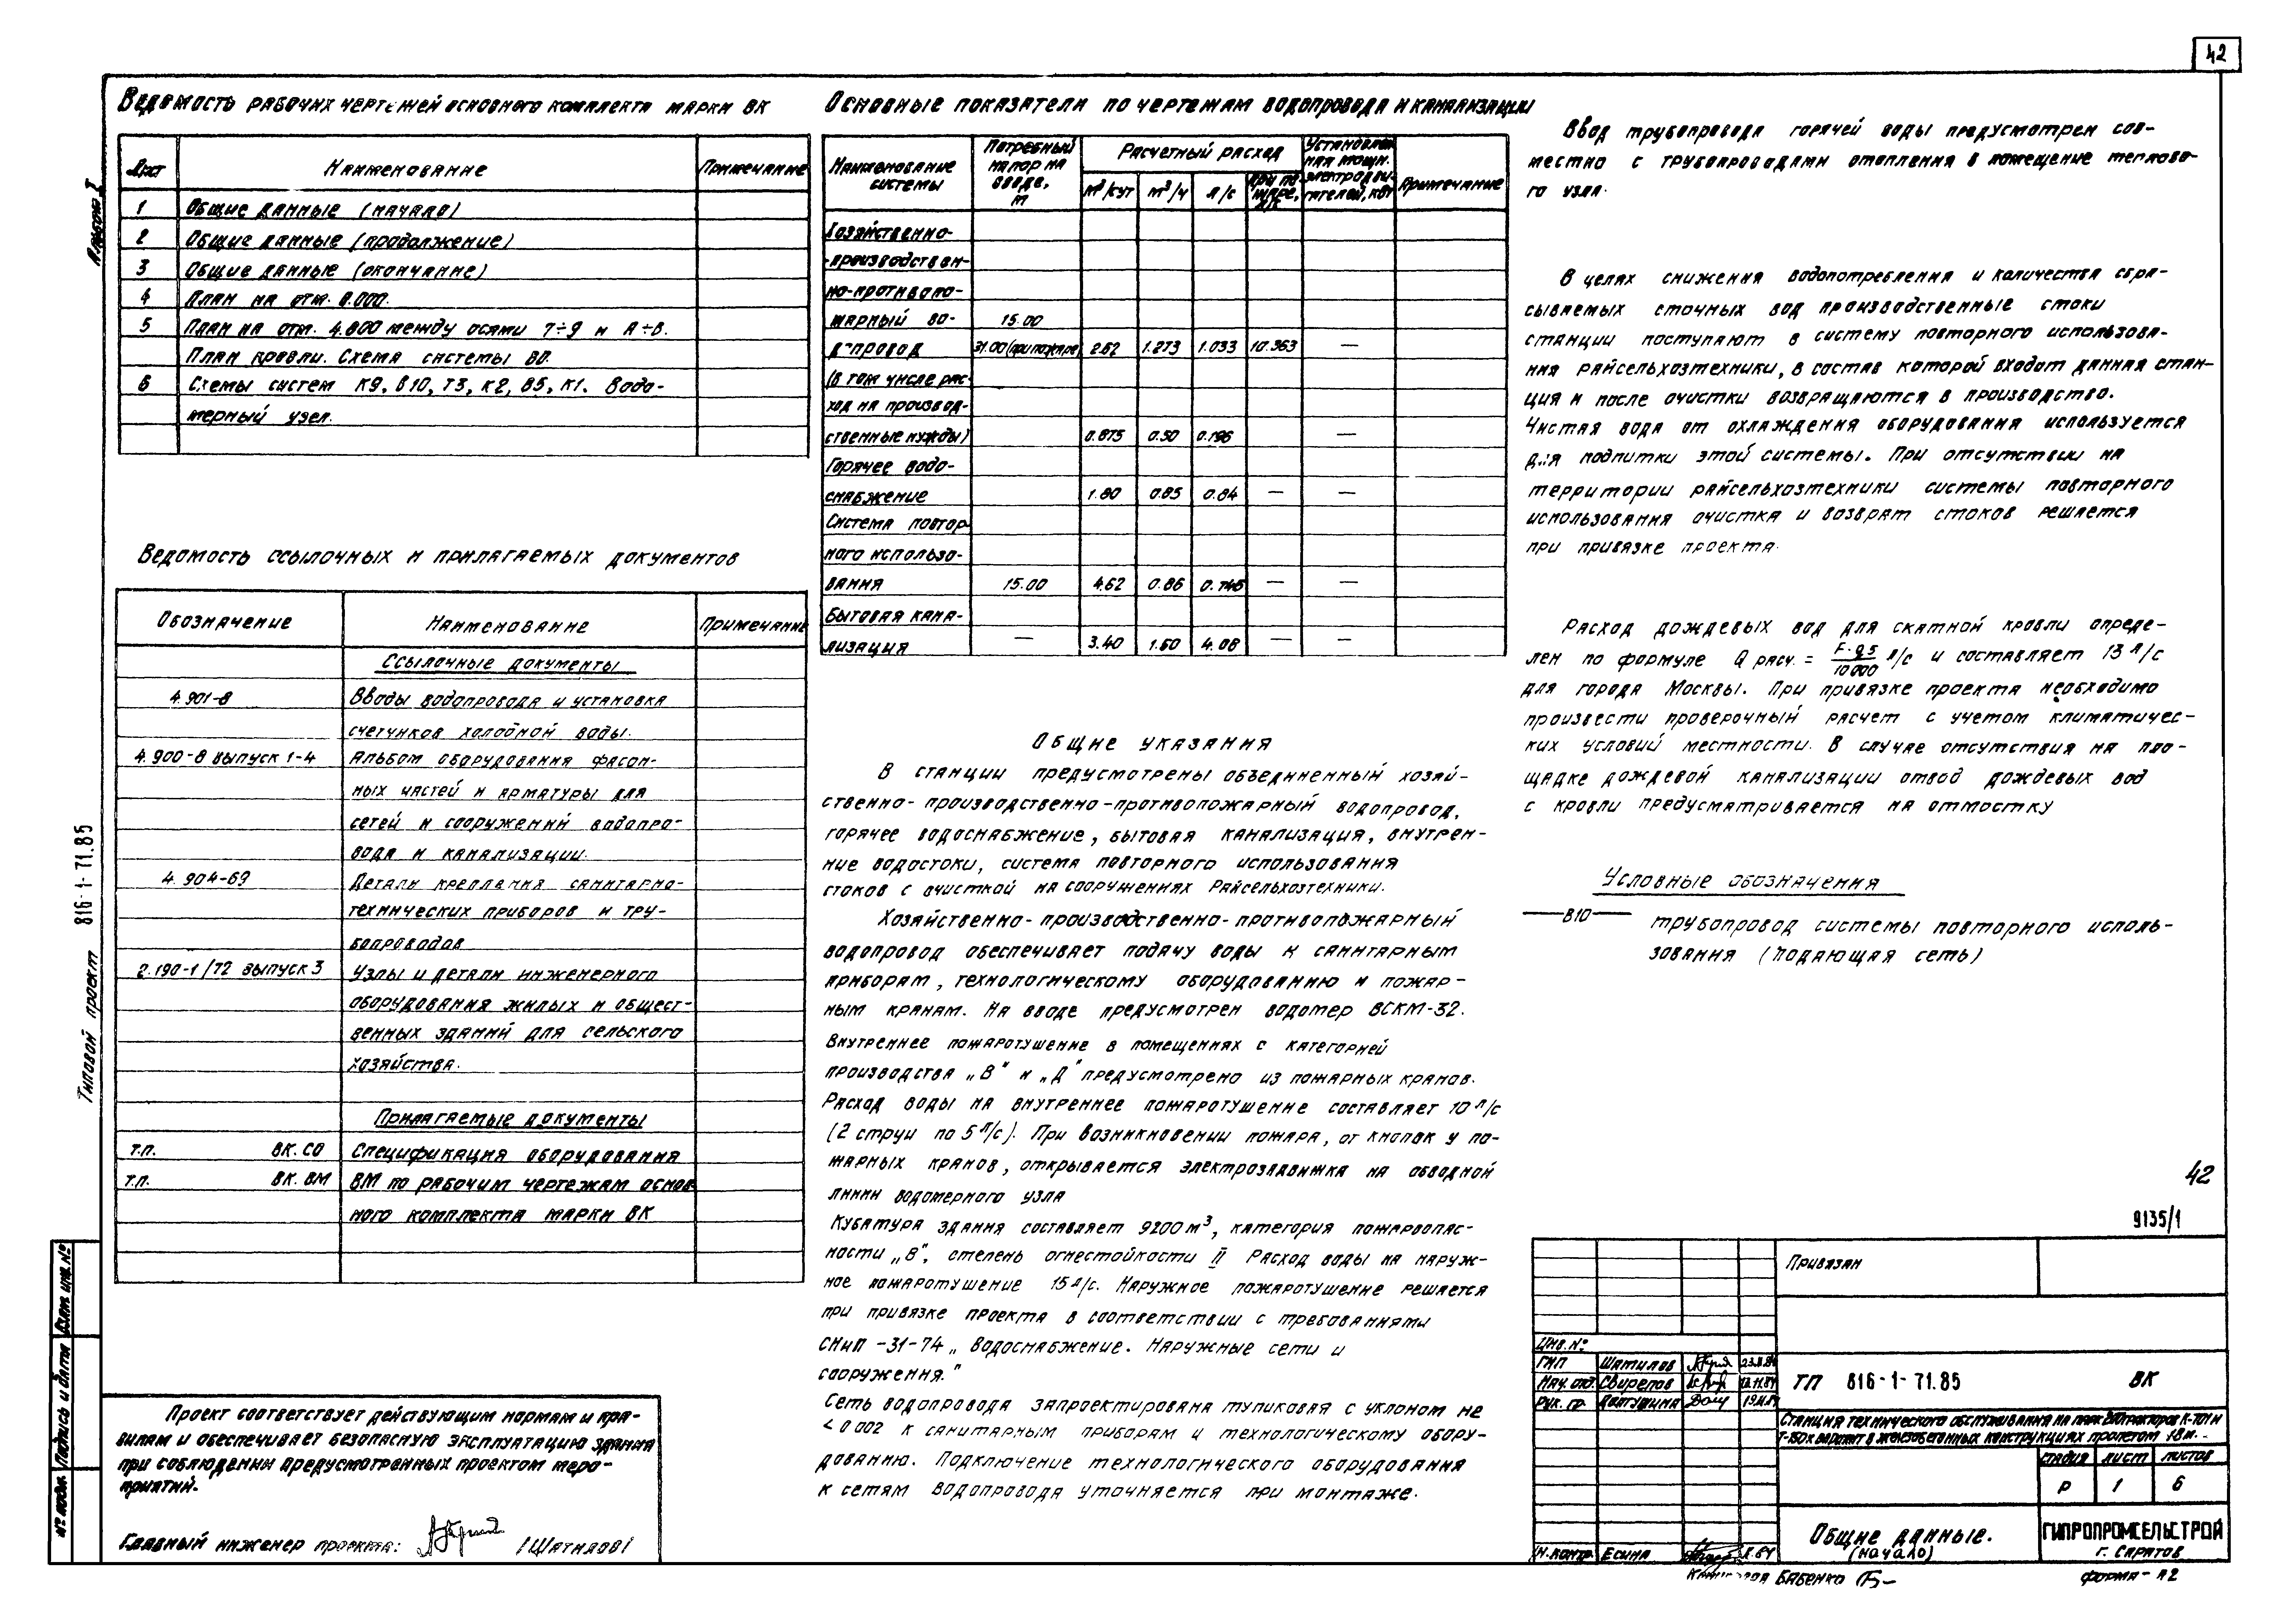 42
Альбом I
Типовой проект 816-1-71.85
Ведомость рабочих чертежей основного комплекта марки ВК
Лист Наименование Примечание
1 Общие данные (начало)
2 Общие данные (продолжение)
3 Общие данные (окончание)
4 План на отм. 0.000.
5 План на отм. 4.800 между осями 7÷9 и А÷В.
План кровли. Схема системы В0.
6 Схемы систем К9, В10, Т3, К2, В5, К1. Водо-
мерный узел.
Ведомость ссылочных и прилагаемых документов
Обозначение Наименование Примечание
Ссылочные документы
4.901-8 Вводы водопровода и установка
счетчиков холодной воды.
4.900-8 выпуск 1-4 Альбом оборудования фасон-
ных частей и арматуры для
сетей и сооружений водопро-
вода и канализации.
4.904-69 Детали крепления санитарно-
технических приборов и тру-
бопроводов
2.190-1/72 выпуск 3 Узлы и детали инженерного
оборудования жилых и общест-
венных зданий для сельского
хозяйства.
Прилагаемые документы
т.п. ВК.СО Спецификация оборудования
т.п. ВК.ВМ ВМ по рабочим чертежам основ
ного комплекта марки ВК
Проект соответствует действующим нормам и пра-
вилам и обеспечивает безопасную эксплуатацию здания
при соблюдении предусмотренных проектом меро-
приятий.
Главный инженер проекта: /Шатилов/
Основные показатели по чертежам водопровода и канализации
Наименование системы Потребный напор на вводе, м Расчетный расход Установлен ная мощн. электродви- гателей, кВт Примечание
м³/сут м³/ч л/с При по- жаре, л/с
Хозяйственно-
-производствен-
но-противопо-
жарный во- 15.00
допровод 31.00 (при пожаре) 2.62 1.273 1.033 10.363 —
(в том числе рас-
ход на производ-
ственные нужды) 0.875 0.50 0.196 —
Горячее водо-
снабжение 1.80 0.85 0.84 — —
Система повтор-
ного использо-
вания 15.00 4.62 0.86 0.746 — —
Бытовая кана-
лизация — 3.40 1.60 4.08 — —
Общие указания
В станции предусмотрены объединенный хозяй-
ственно-производственно-противопожарный водопровод,
горячее водоснабжение, бытовая канализация, внутрен-
ние водостоки, система повторного использования
стоков с очисткой на сооружениях Райсельхозтехники.
Хозяйственно-производственно-противопожарный
водопровод обеспечивает подачу воды к санитарным
приборам, технологическому оборудованию и пожар-
ным кранам. На вводе предусмотрен водомер ВСКМ-32.
Внутреннее пожаротушение в помещениях с категорией
производства „В" и „Д" предусмотрено из пожарных кранов.
Расход воды на внутреннее пожаротушение составляет 10 л/с
(2 струи по 5 л/с). При возникновении пожара, от кнопок у по-
жарных кранов, открывается электрозадвижка на обводной
линии водомерного узла
Кубатура здания составляет 9200 м³, категория пожароопас-
ности „В", степень огнестойкости II Расход воды на наруж-
ное пожаротушение 15 л/с. Наружное пожаротушение решается
при привязке проекта в соответствии с требованиями
СНиП -31-74 „Водоснабжение. Наружные сети и
сооружения."
Сеть водопровода запроектирована тупиковая с уклоном не
< 0002 к санитарным приборам и технологическому обору-
дованию. Подключение технологического оборудования
к сетям водопровода уточняется при монтаже.
Ввод трубопровода горячей воды предусмотрен сов-
местно с трубопроводами отопления в помещение теплово-
го узла.
В целях снижения водопотребления и количества сбра-
сываемых сточных вод производственные стоки
станции поступают в систему повторного использова-
ния райсельхозтехники, в состав которой входит данная стан-
ция и после очистки возвращаются в производство.
Чистая вода от охлаждения оборудования используется
для подпитки этой системы. При отсутствии на
территории райсельхозтехники системы повторного
использования очистка и возврат стоков решается
при привязке проекта.
Расход дождевых вод для скатной кровли опреде-
лен по формуле Q расч. = F·q5/10000 л/с и составляет 13 л/с
для города Москвы. При привязке проекта необходимо
произвести проверочный расчет с учетом климатичес-
ких условий местности. В случае отсутствия на пло-
щадке дождевой канализации отвод дождевых вод
с кровли предусматривается на отмостку
Условные обозначения
—В10— трубопровод системы повторного исполь-
зования (подающая сеть)
42
9135/1
Привязан
Инв. №
ГИП Шатилов 23.11.84
Нач. отд. Свирепов
Рук. гр. 19.11.84
ТП 816-1-71.85 ВК
Станция технического обслуживания на парк тракторов К-701 и
Т-150К вариант в железобетонных конструкциях пролетом 18 м.
стадия лист листов
Р 1 6
Общие данные.
(начало)
ГИПРОПРОМСЕЛЬСТРОЙ
г. Саратов
Н.контр. Есина
Бабенко
формат А2
№ подл. Подпись и дата Взам. инв. №